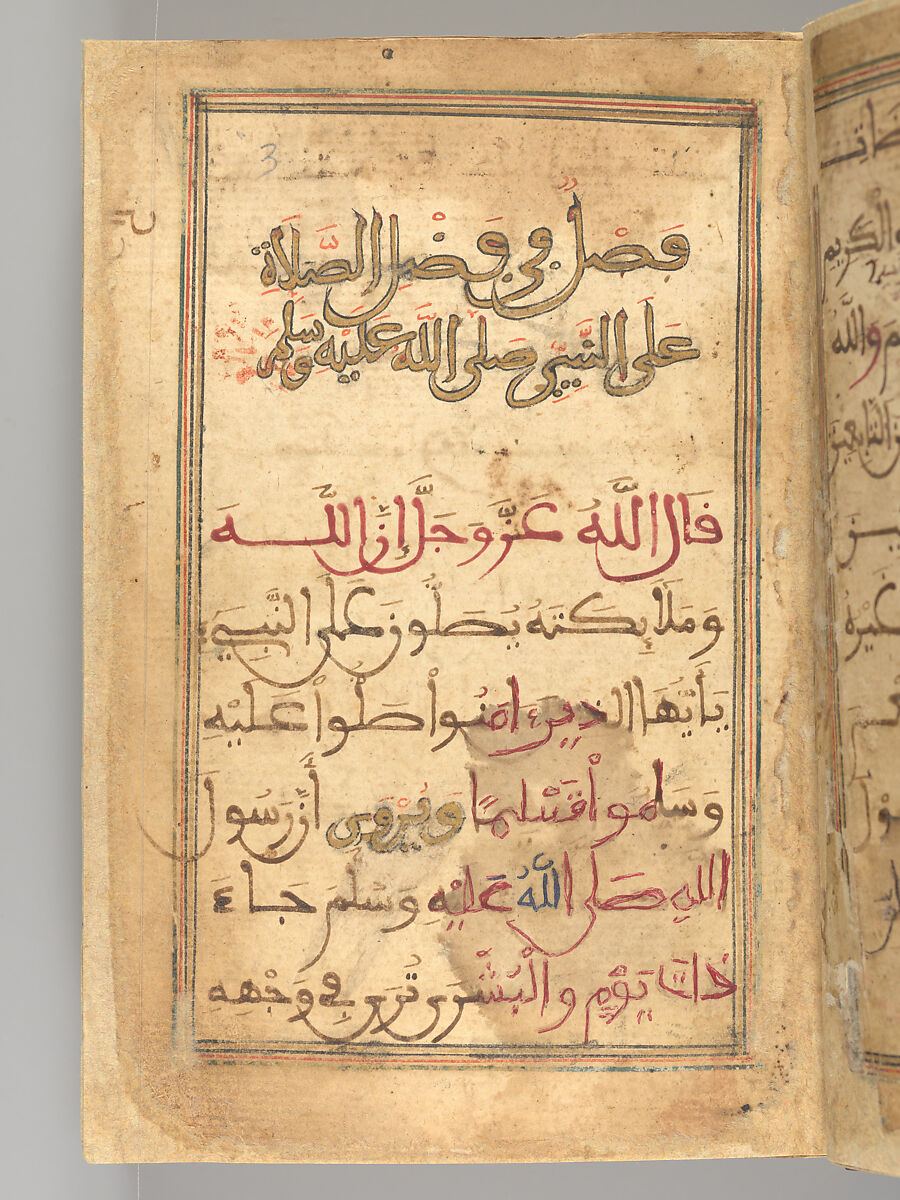 فَصْلٌ فِي فَضْلِ الصَّلَاةِ
عَلَى النَّبِيِّ صَلَّى اللَّه عَلَيْهِ وَسَلَّمَ
قَالَ اللَّهُ عَزَّ وَجَلَّ إِنَّ اللَّـــهَ
وَمَلَائِكَتَهُ يُصَلُّونَ عَلَى النَّبِيءِ
يَأَيُّهَا الذِينَ ءَامَنُواْ صَلُّواْ عَلَيْهِ
وَسَلِّمُواْ تَسْلِيمًا وَيُرْوَى أَنَّ رَسُولَ
اللهِ صَلَّى اللهُ عَلَيْهِ وَسَلَّمَ جَاءَ
ذَاتَ يَوْمٍ وَالْبُشْرَى تُرَى فِي وَجْهِهِ
3
والكريم
والله
التابعين
غيره